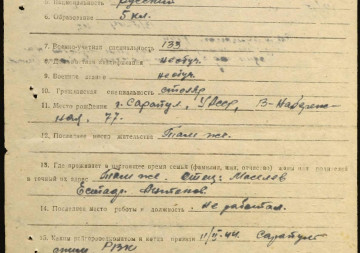 русский
6. Образование 5 кл.
7. Военно-учетная специальность 133
необуч.
9. Воинское звание необуч.
10. Гражданская специальность столяр
11. Место рождения г. Сарапул, УАССР, В-Набережная, 77.
12. Постоянное место жительства Там же.
13. Где проживает в настоящее время семья (фамилия, имя, отчество)
и точный их адрес Там же. Отец:
14. Последнее место работы и должность Не работал.
15. Каким райвоенкоматом и когда призван 11/II-44. Сарапульским РВК